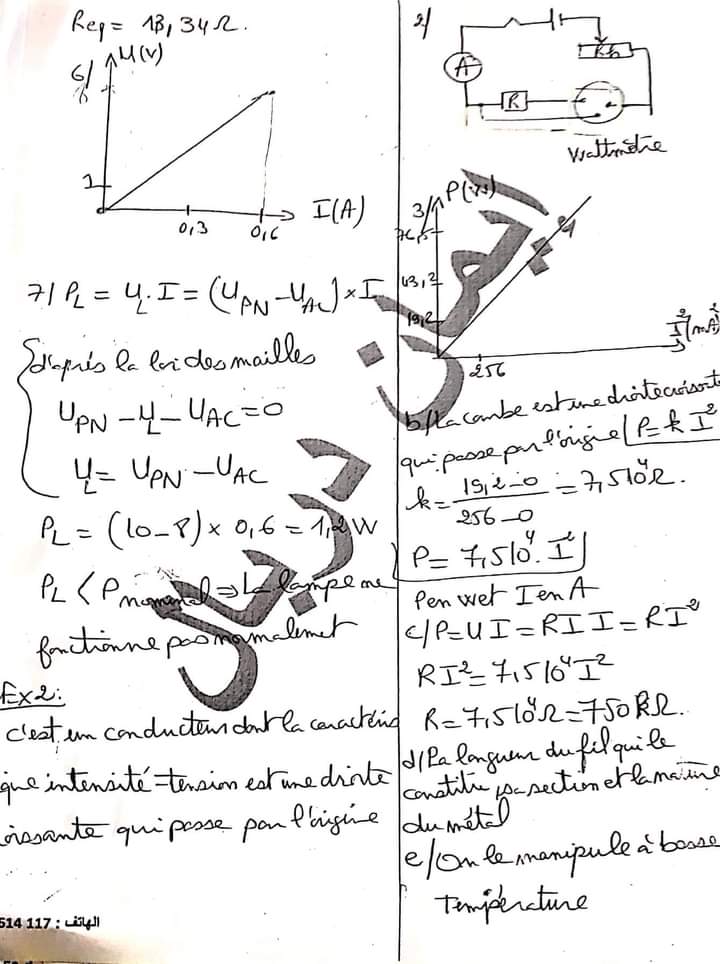 Req = 13,34Ω.
6/
U(V)
1
0
0,3
0,6
I(A)
7/ PL = UL.I = (UPN - UAC) × I
d'après la loi des mailles
UPN - UL - UAC = 0
UL = UPN - UAC
PL = (10 - 8) × 0,6 = 1,2W
PL < Pnominal ⇒ La lampe ne
fonctionne pas normalemet
Ex2:
c'est un conducteur dont la caractéris
que intensité-tension est une droite
oissante qui passe par l'origine
الهاتف : 117 514
2/
A
Rh
R
Wattmètre
3/
P(W)
43,2
19,2
256
I²(mA)²
b/ La courbe est une droite croissante
qui passe par l'origine P = kI²
k = 19,2-0 / 256-0 = 7,5 10⁴Ω.
P = 7,5 10⁴. I²
P en W et I en A
c/ P = UI = RII = RI²
RI² = 7,5 10⁴ I²
R = 7,5 10⁴Ω = 750 kΩ.
d/ La longueur du fil qui le
constitue sa section et la nature
du métal
e/ On le manipule à basse
température